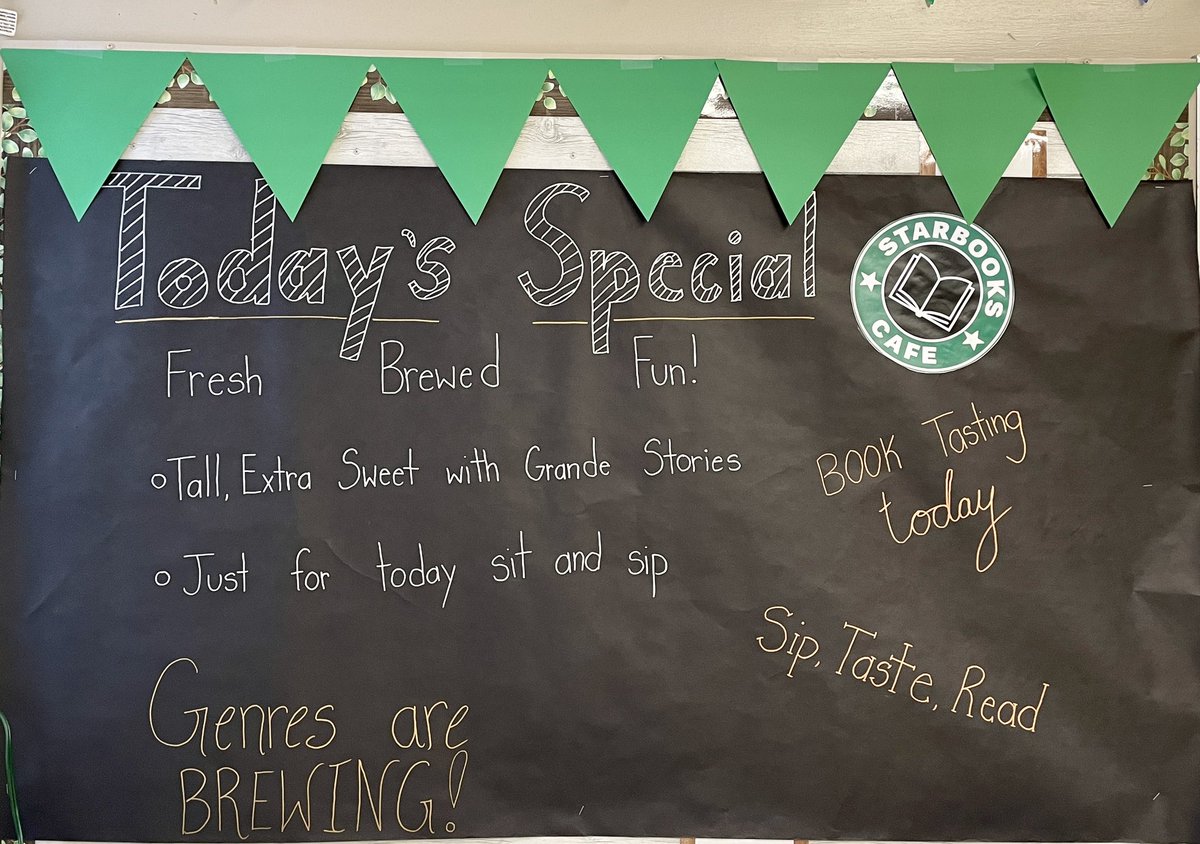 Today's Special
STARBOOKS
CAFE
Fresh Brewed Fun!
Tall, Extra Sweet with Grande Stories
Just for today sit and sip
BOOK Tasting
today
Sip, Taste, Read
Genres are
BREWING!